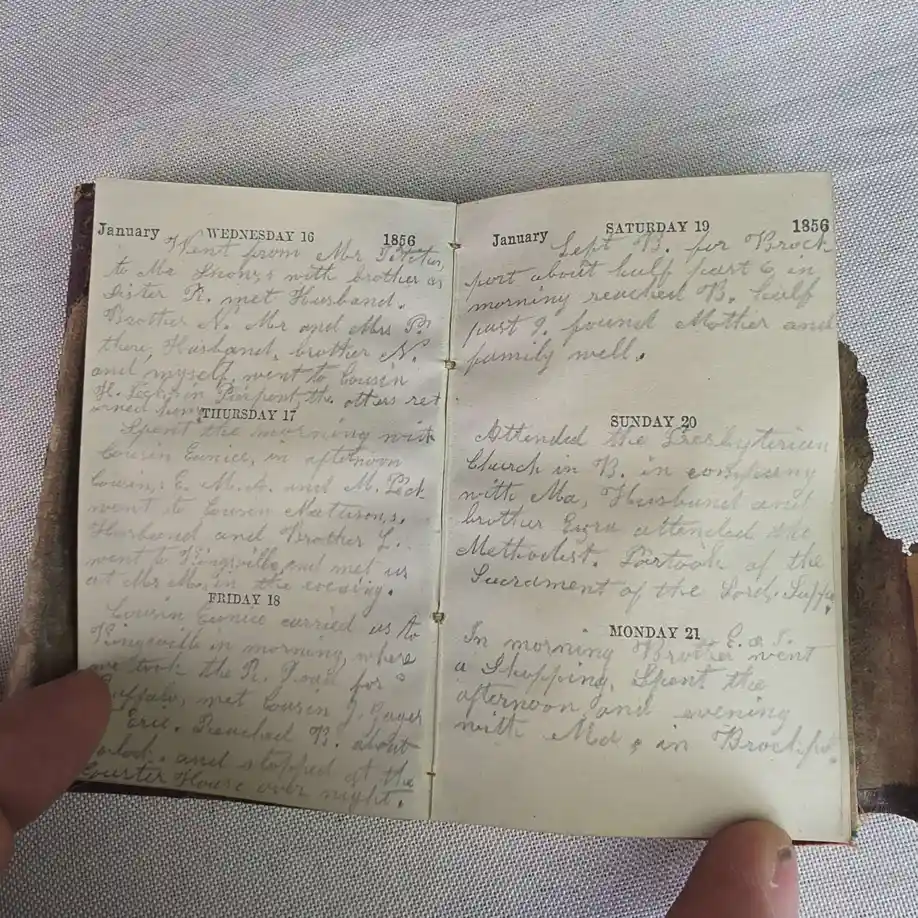 January WEDNESDAY 16 1856
Went from Mr
to Mr with brother as
Sister R. met Husband.
Brother N. Mr and Mrs P.
there, Husband, brother N.
and myself, went to Cousin
H. in Pierpont, the others ret
urned home
THURSDAY 17
Spent the morning with
Cousin Eunice, in afternoon
Cousins E. M. A. and M. Peck
went to Cousin
Husband and Brother L.
went to Kingsville, and met us
at Mr M. in the evening.
FRIDAY 18
Cousin Eunice carried us to
Kingsville in morning, where
we took the R. for
Buffalo, met Cousin J.
Erie. Reached B. about
and stopped at the
House over night.
January SATURDAY 19 1856
Left B. for Brock
port about half past 6 in
morning reached B. half
past 9. found Mother and
family well.
SUNDAY 20
Attended the Presbyterian
Church in B. in company
with Ma, Husband and
brother Ezra attended the
Methodist. Partook of the
Sacrament of the Lord's Supper.
MONDAY 21
In morning Brother E. & S. went
a Shopping. Spent the
afternoon and evening
with Ma, in Brockpt.